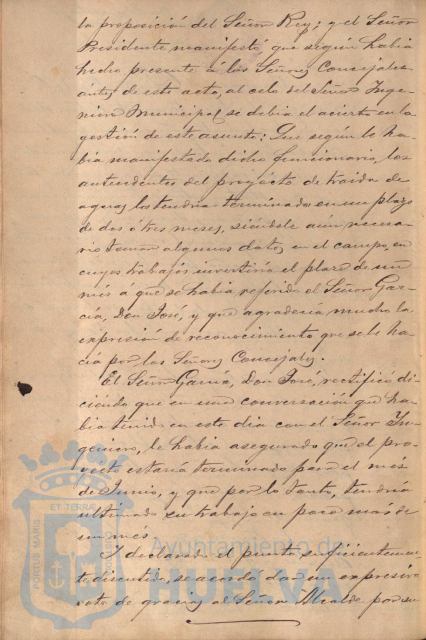 la proposición del Señor Rey; y el Señor
Presidente manifestó, que según había
hecho presente á los Señores Concejales
antes de este acto, al celo del Señor Inge-
niero Municipal se debia el acierto en la
gestión de este asunto: Que según le ha-
bía manifestado dicho funcionario, los
antecedentes del proyecto de traida de
aguas los tendria terminados en un plazo
de dos ó tres meses, siéndole aún necesa-
rio tomar algunos datos en el campo, en
cuyos trabajos invertiría el plazo de un
mes á que se había referido el Señor Gar-
cía, Don José, y que agradecia mucho la
expresion de reconocimiento que se le ha-
cía por los Señores Concejales.
El Señor García, Don José, rectificó di-
ciendo que en una conversación que ha-
bia tenido en este dia con el Señor In-
geniero, le habia asegurado que el pro-
yecto estaría terminado para el mes
de Junio, y que por lo tanto, tendría
ultimado su trabajo en poco más de
un mes.
Y declarado el punto suficientemen-
te discutido, se acordó dar un expresivo
voto de gracias al Señor Alcalde por su
PORTUS MARIS
ET TERRE
Ayuntamiento de
HUELVA